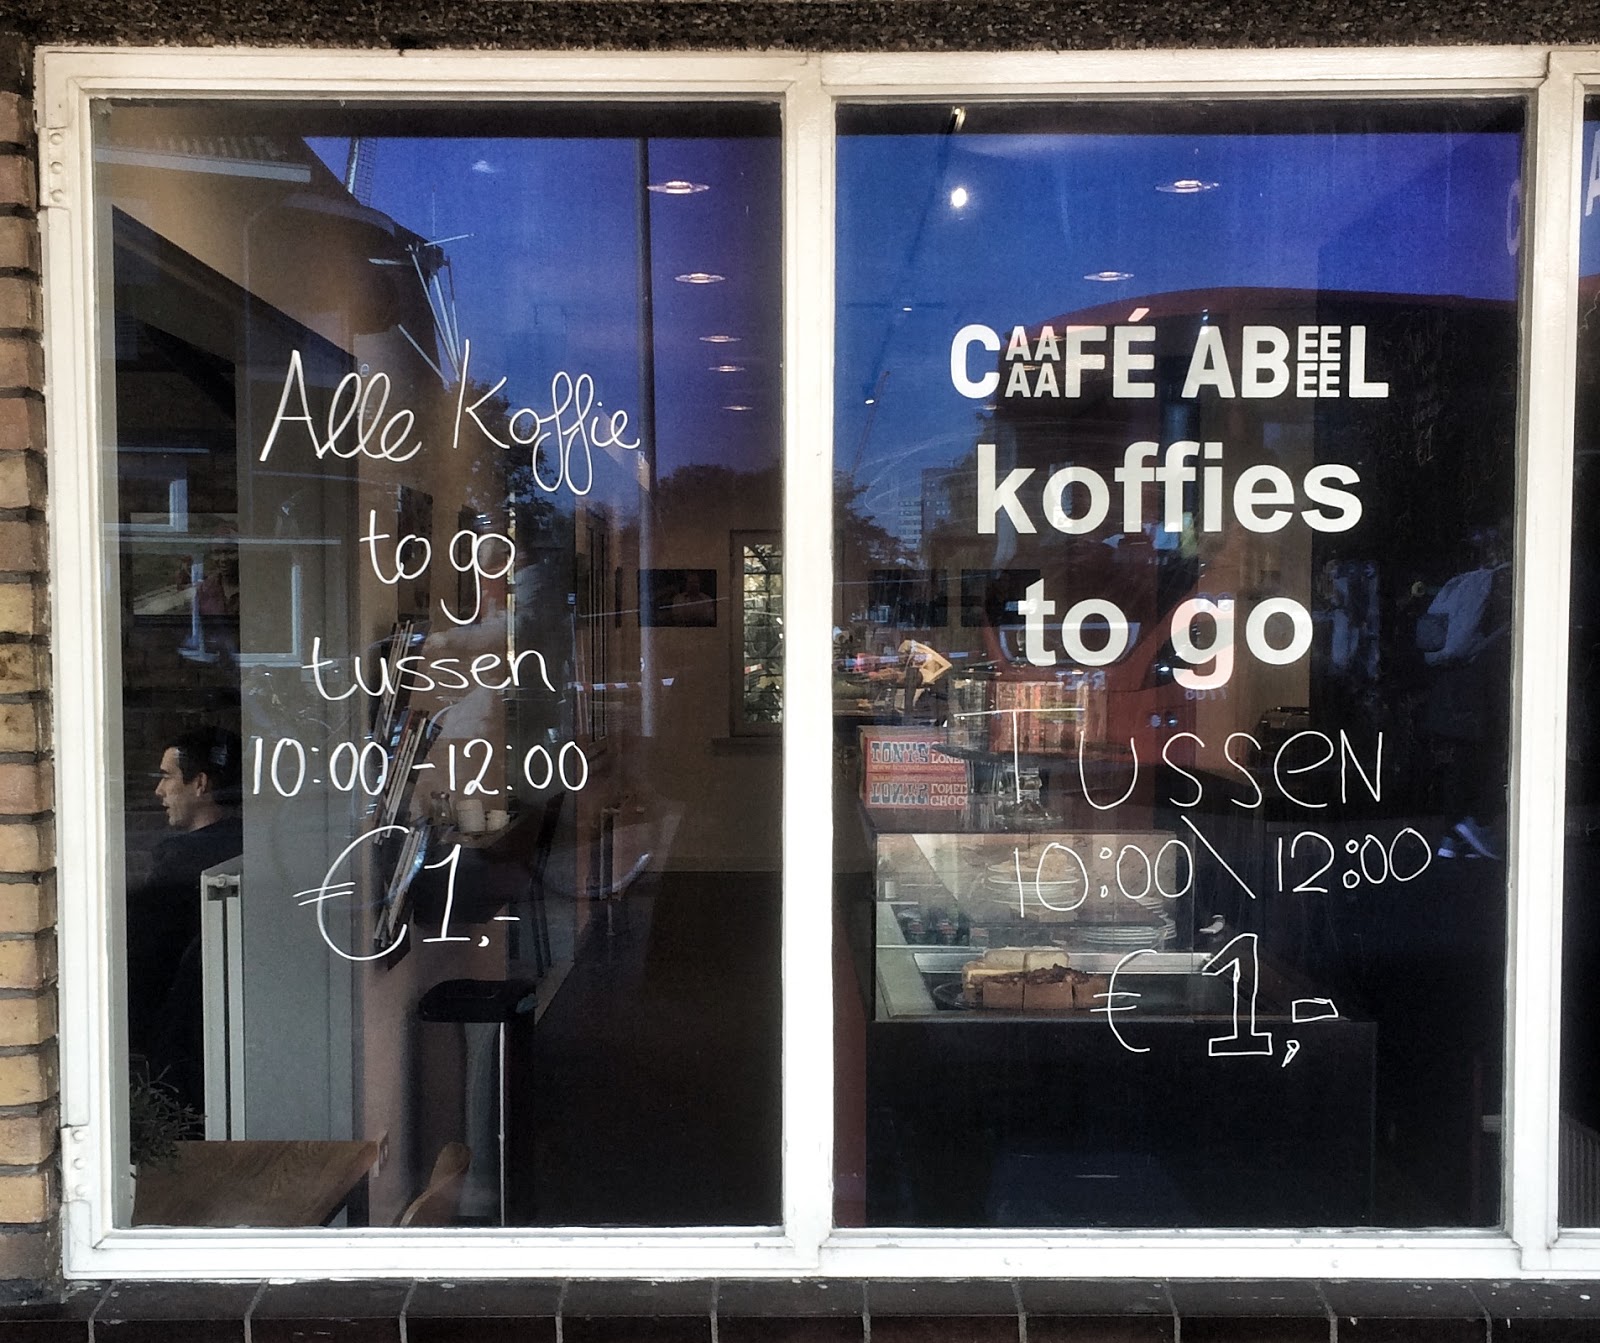 Alle Koffie
to go
tussen
10:00-12:00
€1,-
CAAAAFÉ ABEEEEL
koffies
to go
TUSSEN
10:00\12:00
€1,-
TONY'S